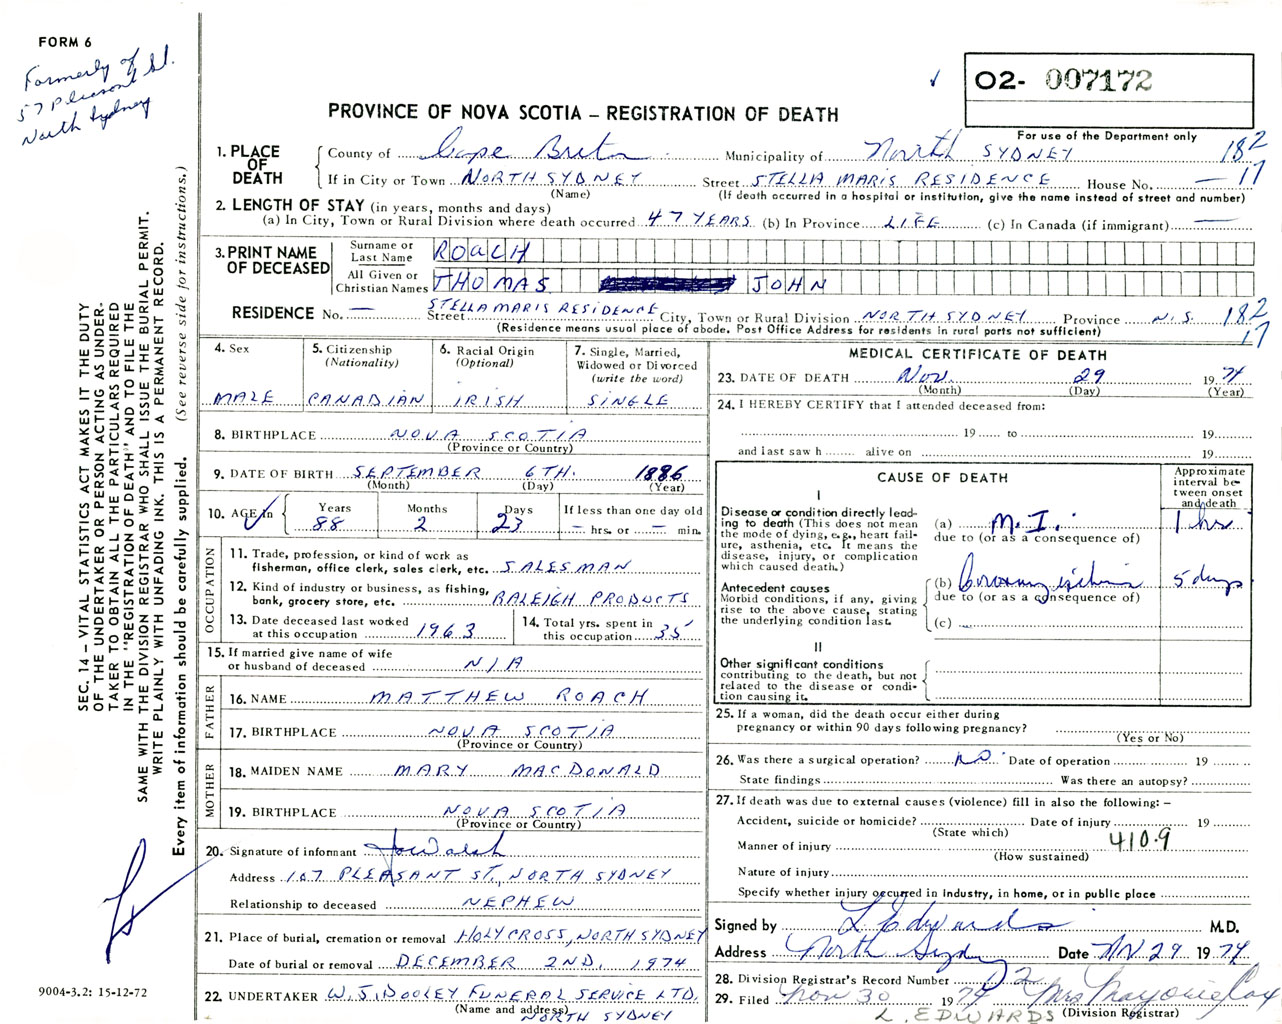 FORM 6
Formerly of
57 Pleasant St.
North Sydney
02- 007172
PROVINCE OF NOVA SCOTIA – REGISTRATION OF DEATH
For use of the Department only
1. PLACE OF DEATH
County of Cape Breton Municipality of North SYDNEY 182
If in City or Town NORTH SYDNEY Street STELLA MARIS RESIDENCE House No. — 17
(Name) (If death occurred in a hospital or institution, give the name instead of street and number)
2. LENGTH OF STAY (in years, months and days)
(a) In City, Town or Rural Division where death occurred 47 YEARS (b) In Province LIFE (c) In Canada (if immigrant) —
3. PRINT NAME OF DECEASED
Surname or Last Name ROACH
All Given or Christian Names THOMAS JOHN
RESIDENCE No. — Street STELLA MARIS RESIDENCE City, Town or Rural Division NORTH SYDNEY Province N.S. 182
(Residence means usual place of abode. Post Office Address for residents in rural parts not sufficient) 17
4. Sex
MALE
5. Citizenship
(Nationality)
CANADIAN
6. Racial Origin
(Optional)
IRISH
7. Single, Married,
Widowed or Divorced
(write the word)
SINGLE
8. BIRTHPLACE NOVA SCOTIA
(Province or Country)
9. DATE OF BIRTH SEPTEMBER 6TH. 1886
(Month) (Day) (Year)
10. AGE in
Years Months Days If less than one day old
88 2 23 — hrs. or — min.
OCCUPATION
11. Trade, profession, or kind of work as
fisherman, office clerk, sales clerk, etc. SALESMAN
12. Kind of industry or business, as fishing,
bank, grocery store, etc. RALEIGH PRODUCTS
13. Date deceased last worked
at this occupation 1963
14. Total yrs. spent in
this occupation 35
15. If married give name of wife
or husband of deceased N/A
FATHER
16. NAME MATTHEW ROACH
17. BIRTHPLACE NOVA SCOTIA
(Province or Country)
MOTHER
18. MAIDEN NAME MARY MACDONALD
19. BIRTHPLACE NOVA SCOTIA
(Province or Country)
20. Signature of informant Walsh
Address 107 PLEASANT ST., NORTH SYDNEY
Relationship to deceased NEPHEW
21. Place of burial, cremation or removal HOLY CROSS, NORTH SYDNEY
Date of burial or removal DECEMBER 2ND. 1974
22. UNDERTAKER W. J. DOOLEY FUNERAL SERVICE LTD.
(Name and address) NORTH SYDNEY
MEDICAL CERTIFICATE OF DEATH
23. DATE OF DEATH Nov. 29 1974
(Month) (Day) (Year)
24. I HEREBY CERTIFY that I attended deceased from:
19 to 19
and last saw h alive on 19
CAUSE OF DEATH
Approximate interval between onset and death
I
Disease or condition directly leading to death (This does not mean
the mode of dying, e.g., heart failure, asthenia, etc. It means the
disease, injury, or complication
which caused death.)
(a) M.I. 1 hr
due to (or as a consequence of)
Antecedent causes
Morbid conditions, if any, giving
rise to the above cause, stating
the underlying condition last.
(b) Coronary ischemia 5 days
due to (or as a consequence of)
(c)
II
Other significant conditions
contributing to the death, but not
related to the disease or condition causing it.
25. If a woman, did the death occur either during
pregnancy or within 90 days following pregnancy?
(Yes or No)
26. Was there a surgical operation? no Date of operation 19
State findings Was there an autopsy?
27. If death was due to external causes (violence) fill in also the following: –
Accident, suicide or homicide? Date of injury 19
(State which) 410.9
Manner of injury
(How sustained)
Nature of injury
Specify whether injury occurred in industry, in home, or in public place
Signed by L Edwards M.D.
Address North Sydney Date Nov 29 1974
28. Division Registrar's Record Number
29. Filed Nov 30 1974 Mrs Marjorie Cox
L. EDWARDS (Division Registrar)
SEC. 14 – VITAL STATISTICS ACT MAKES IT THE DUTY
OF THE UNDERTAKER OR PERSON ACTING AS UNDER-
TAKER TO OBTAIN ALL THE PARTICULARS REQUIRED
IN THE "REGISTRATION OF DEATH" AND TO FILE THE
SAME WITH THE DIVISION REGISTRAR WHO SHALL ISSUE THE BURIAL PERMIT.
WRITE PLAINLY WITH UNFADING INK. THIS IS A PERMANENT RECORD.
Every item of information should be carefully supplied. (See reverse side for instructions.)
9004-3.2: 15-12-72